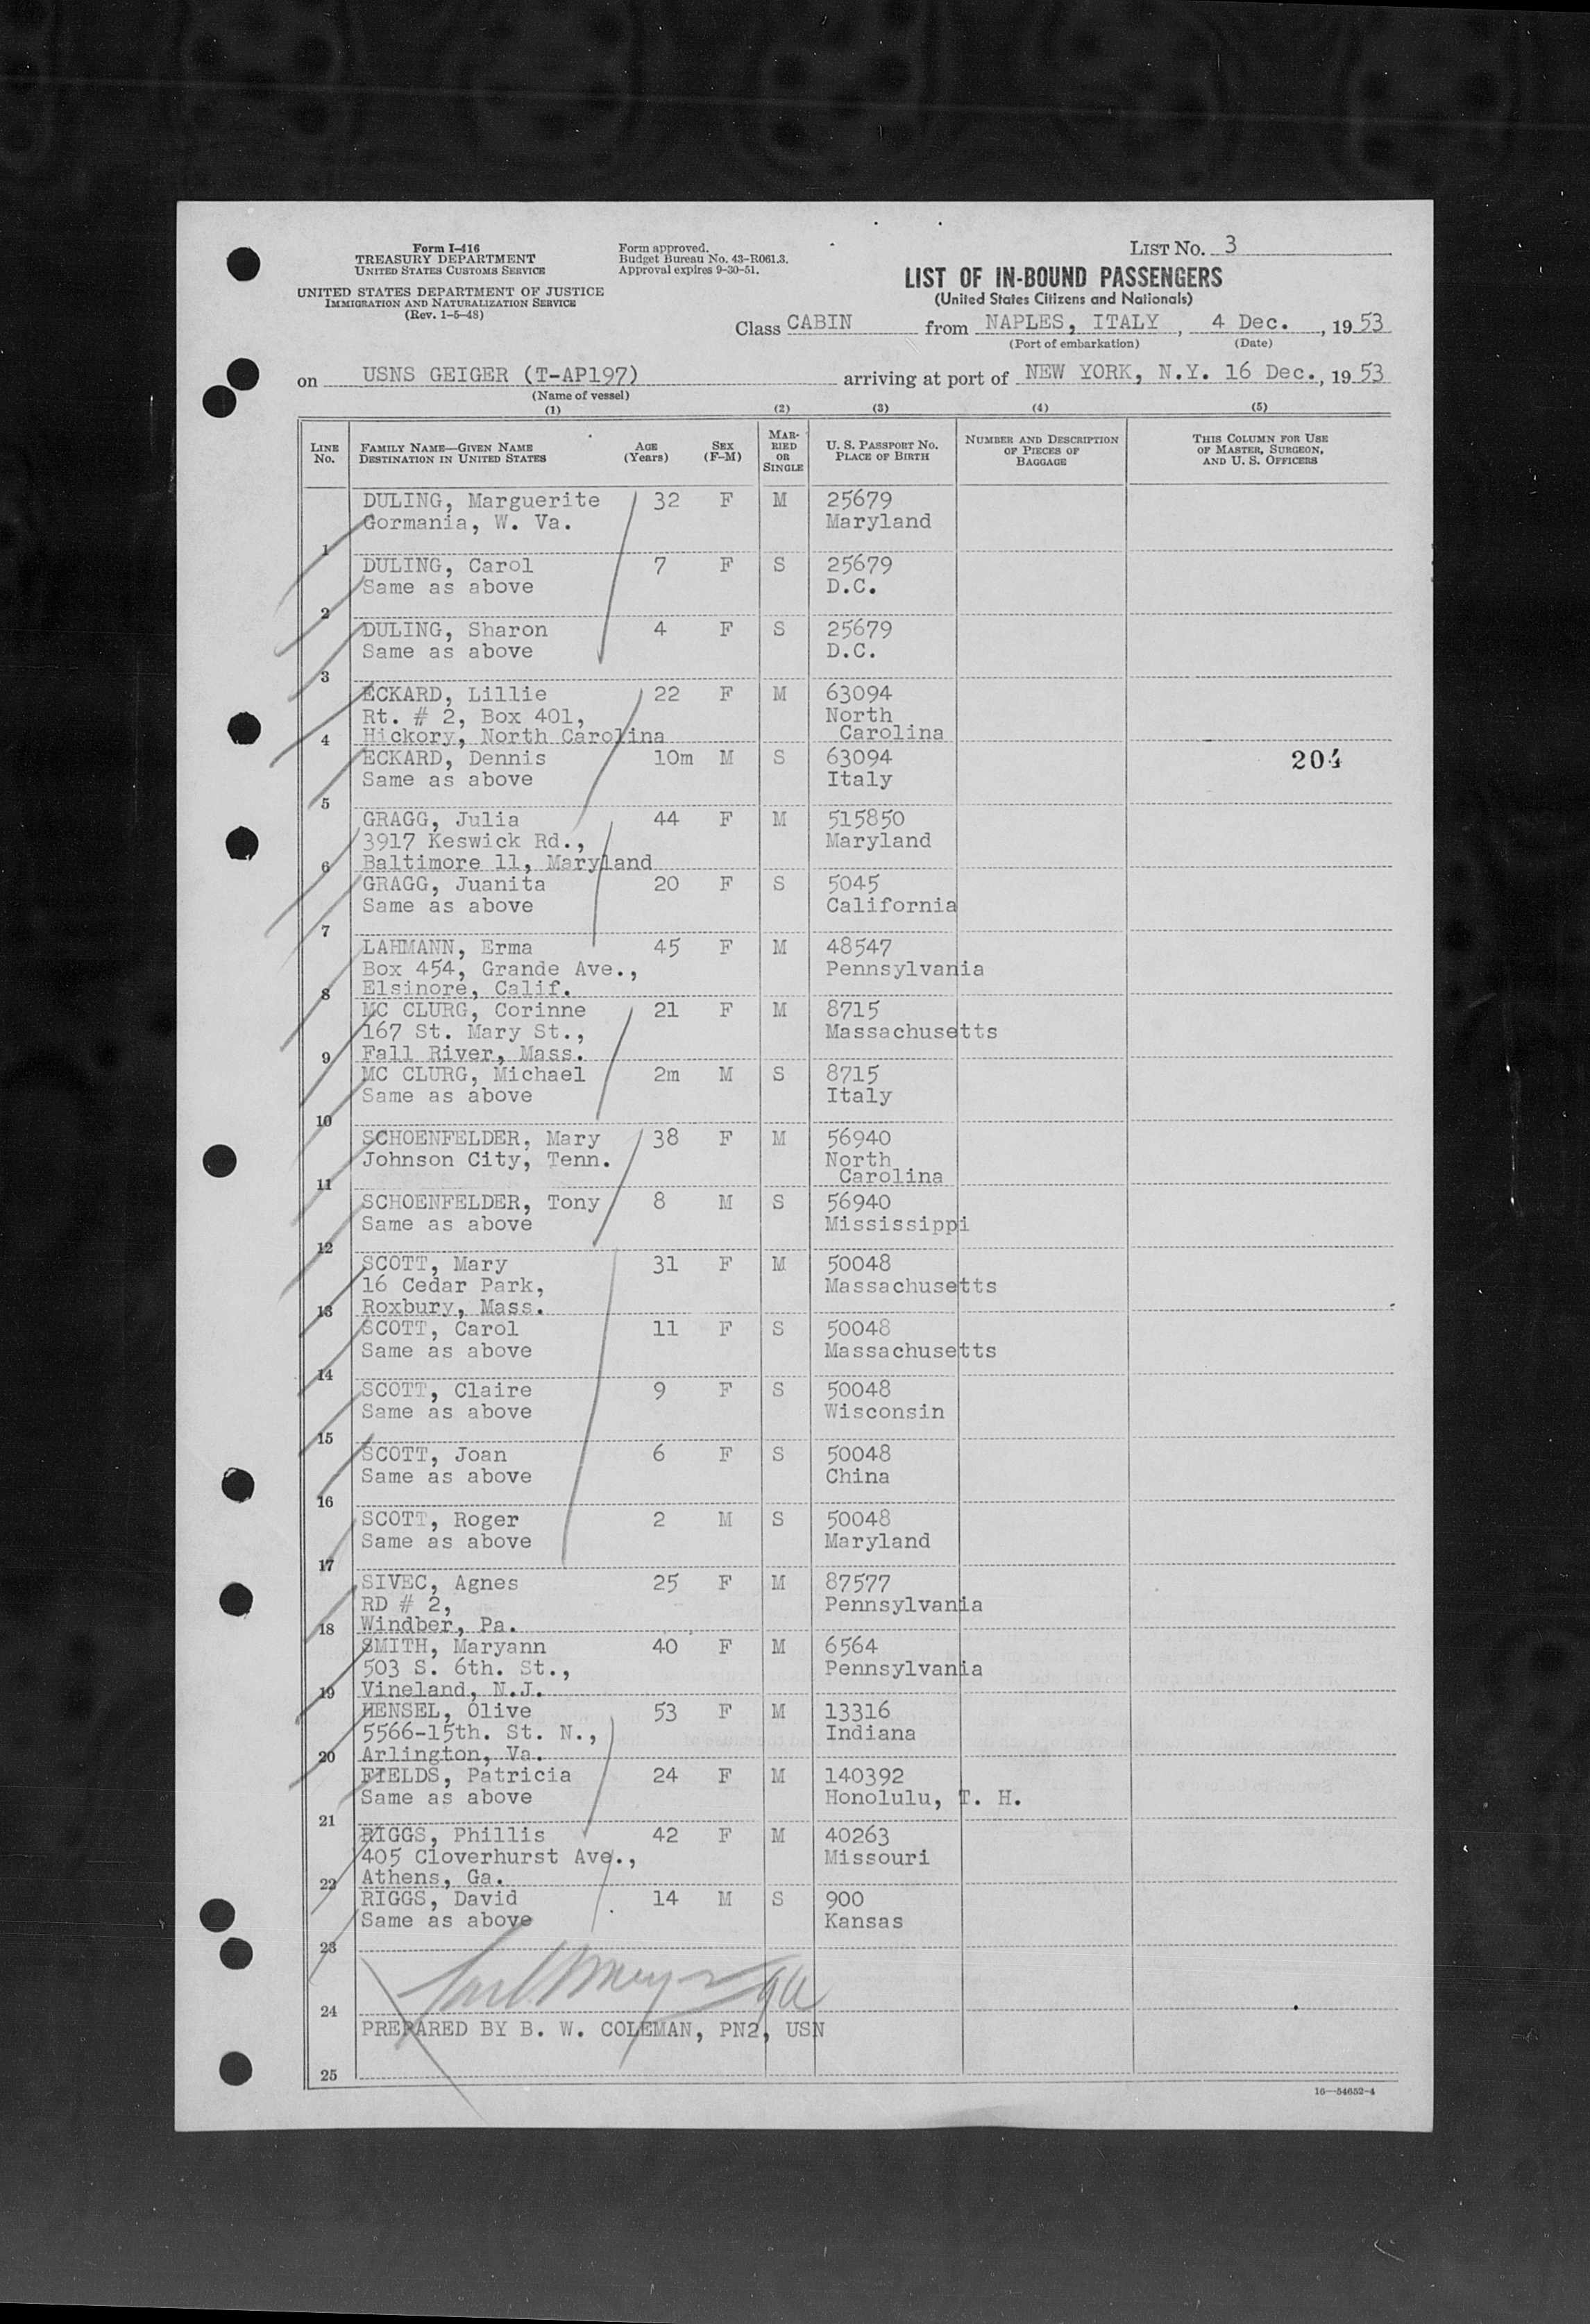 Form I-416
TREASURY DEPARTMENT
UNITED STATES CUSTOMS SERVICE
UNITED STATES DEPARTMENT OF JUSTICE
IMMIGRATION AND NATURALIZATION SERVICE
(Rev. 1-5-48)
Form approved.
Budget Bureau No. 43-R061.3.
Approval expires 9-30-51.
LIST NO. 3
LIST OF IN-BOUND PASSENGERS
(United States Citizens and Nationals)
Class CABIN from NAPLES, ITALY, 4 Dec., 1953
(Port of embarkation) (Date)
on USNS GEIGER (T-AP197) arriving at port of NEW YORK, N.Y. 16 Dec., 1953
(Name of vessel)
(1) (2) (3) (4) (5)
LINE No. FAMILY NAME—GIVEN NAME DESTINATION IN UNITED STATES AGE (Years) SEX (F-M) MARRIED OR SINGLE U. S. PASSPORT NO. PLACE OF BIRTH NUMBER AND DESCRIPTION OF PIECES OF BAGGAGE THIS COLUMN FOR USE OF MASTER, SURGEON, AND U. S. OFFICERS
DULING, Marguerite 32 F M 25679
Gormania, W. Va. Maryland
1
DULING, Carol 7 F S 25679
Same as above D.C.
2
DULING, Sharon 4 F S 25679
Same as above D.C.
3
ECKARD, Lillie 22 F M 63094
Rt. # 2, Box 401, North
4 Hickory, North Carolina Carolina
ECKARD, Dennis 10m M S 63094 204
Same as above Italy
5
GRAGG, Julia 44 F M 515850
3917 Keswick Rd., Maryland
6 Baltimore 11, Maryland
GRAGG, Juanita 20 F S 5045
Same as above California
7
LAHMANN, Erma 45 F M 48547
Box 454, Grande Ave., Pennsylvania
8 Elsinore, Calif.
MC CLURG, Corinne 21 F M 8715
167 St. Mary St., Massachusetts
9 Fall River, Mass.
MC CLURG, Michael 2m M S 8715
Same as above Italy
10
SCHOENFELDER, Mary 38 F M 56940
Johnson City, Tenn. North
11 Carolina
SCHOENFELDER, Tony 8 M S 56940
Same as above Mississippi
12
SCOTT, Mary 31 F M 50048
16 Cedar Park, Massachusetts
13 Roxbury, Mass.
SCOTT, Carol 11 F S 50048
Same as above Massachusetts
14
SCOTT, Claire 9 F S 50048
Same as above Wisconsin
15
SCOTT, Joan 6 F S 50048
Same as above China
16
SCOTT, Roger 2 M S 50048
Same as above Maryland
17
SIVEC, Agnes 25 F M 87577
RD # 2, Pennsylvania
18 Windber, Pa.
SMITH, Maryann 40 F M 6564
503 S. 6th. St., Pennsylvania
19 Vineland, N.J.
HENSEL, Olive 53 F M 13316
5566-15th. St. N., Indiana
20 Arlington, Va.
FIELDS, Patricia 24 F M 140392
Same as above Honolulu, T. H.
21
RIGGS, Phillis 42 F M 40263
405 Cloverhurst Ave., Missouri
22 Athens, Ga.
RIGGS, David 14 M S 900
Same as above Kansas
23
24
PREPARED BY B. W. COLEMAN, PN2, USN
25
16—54652-4